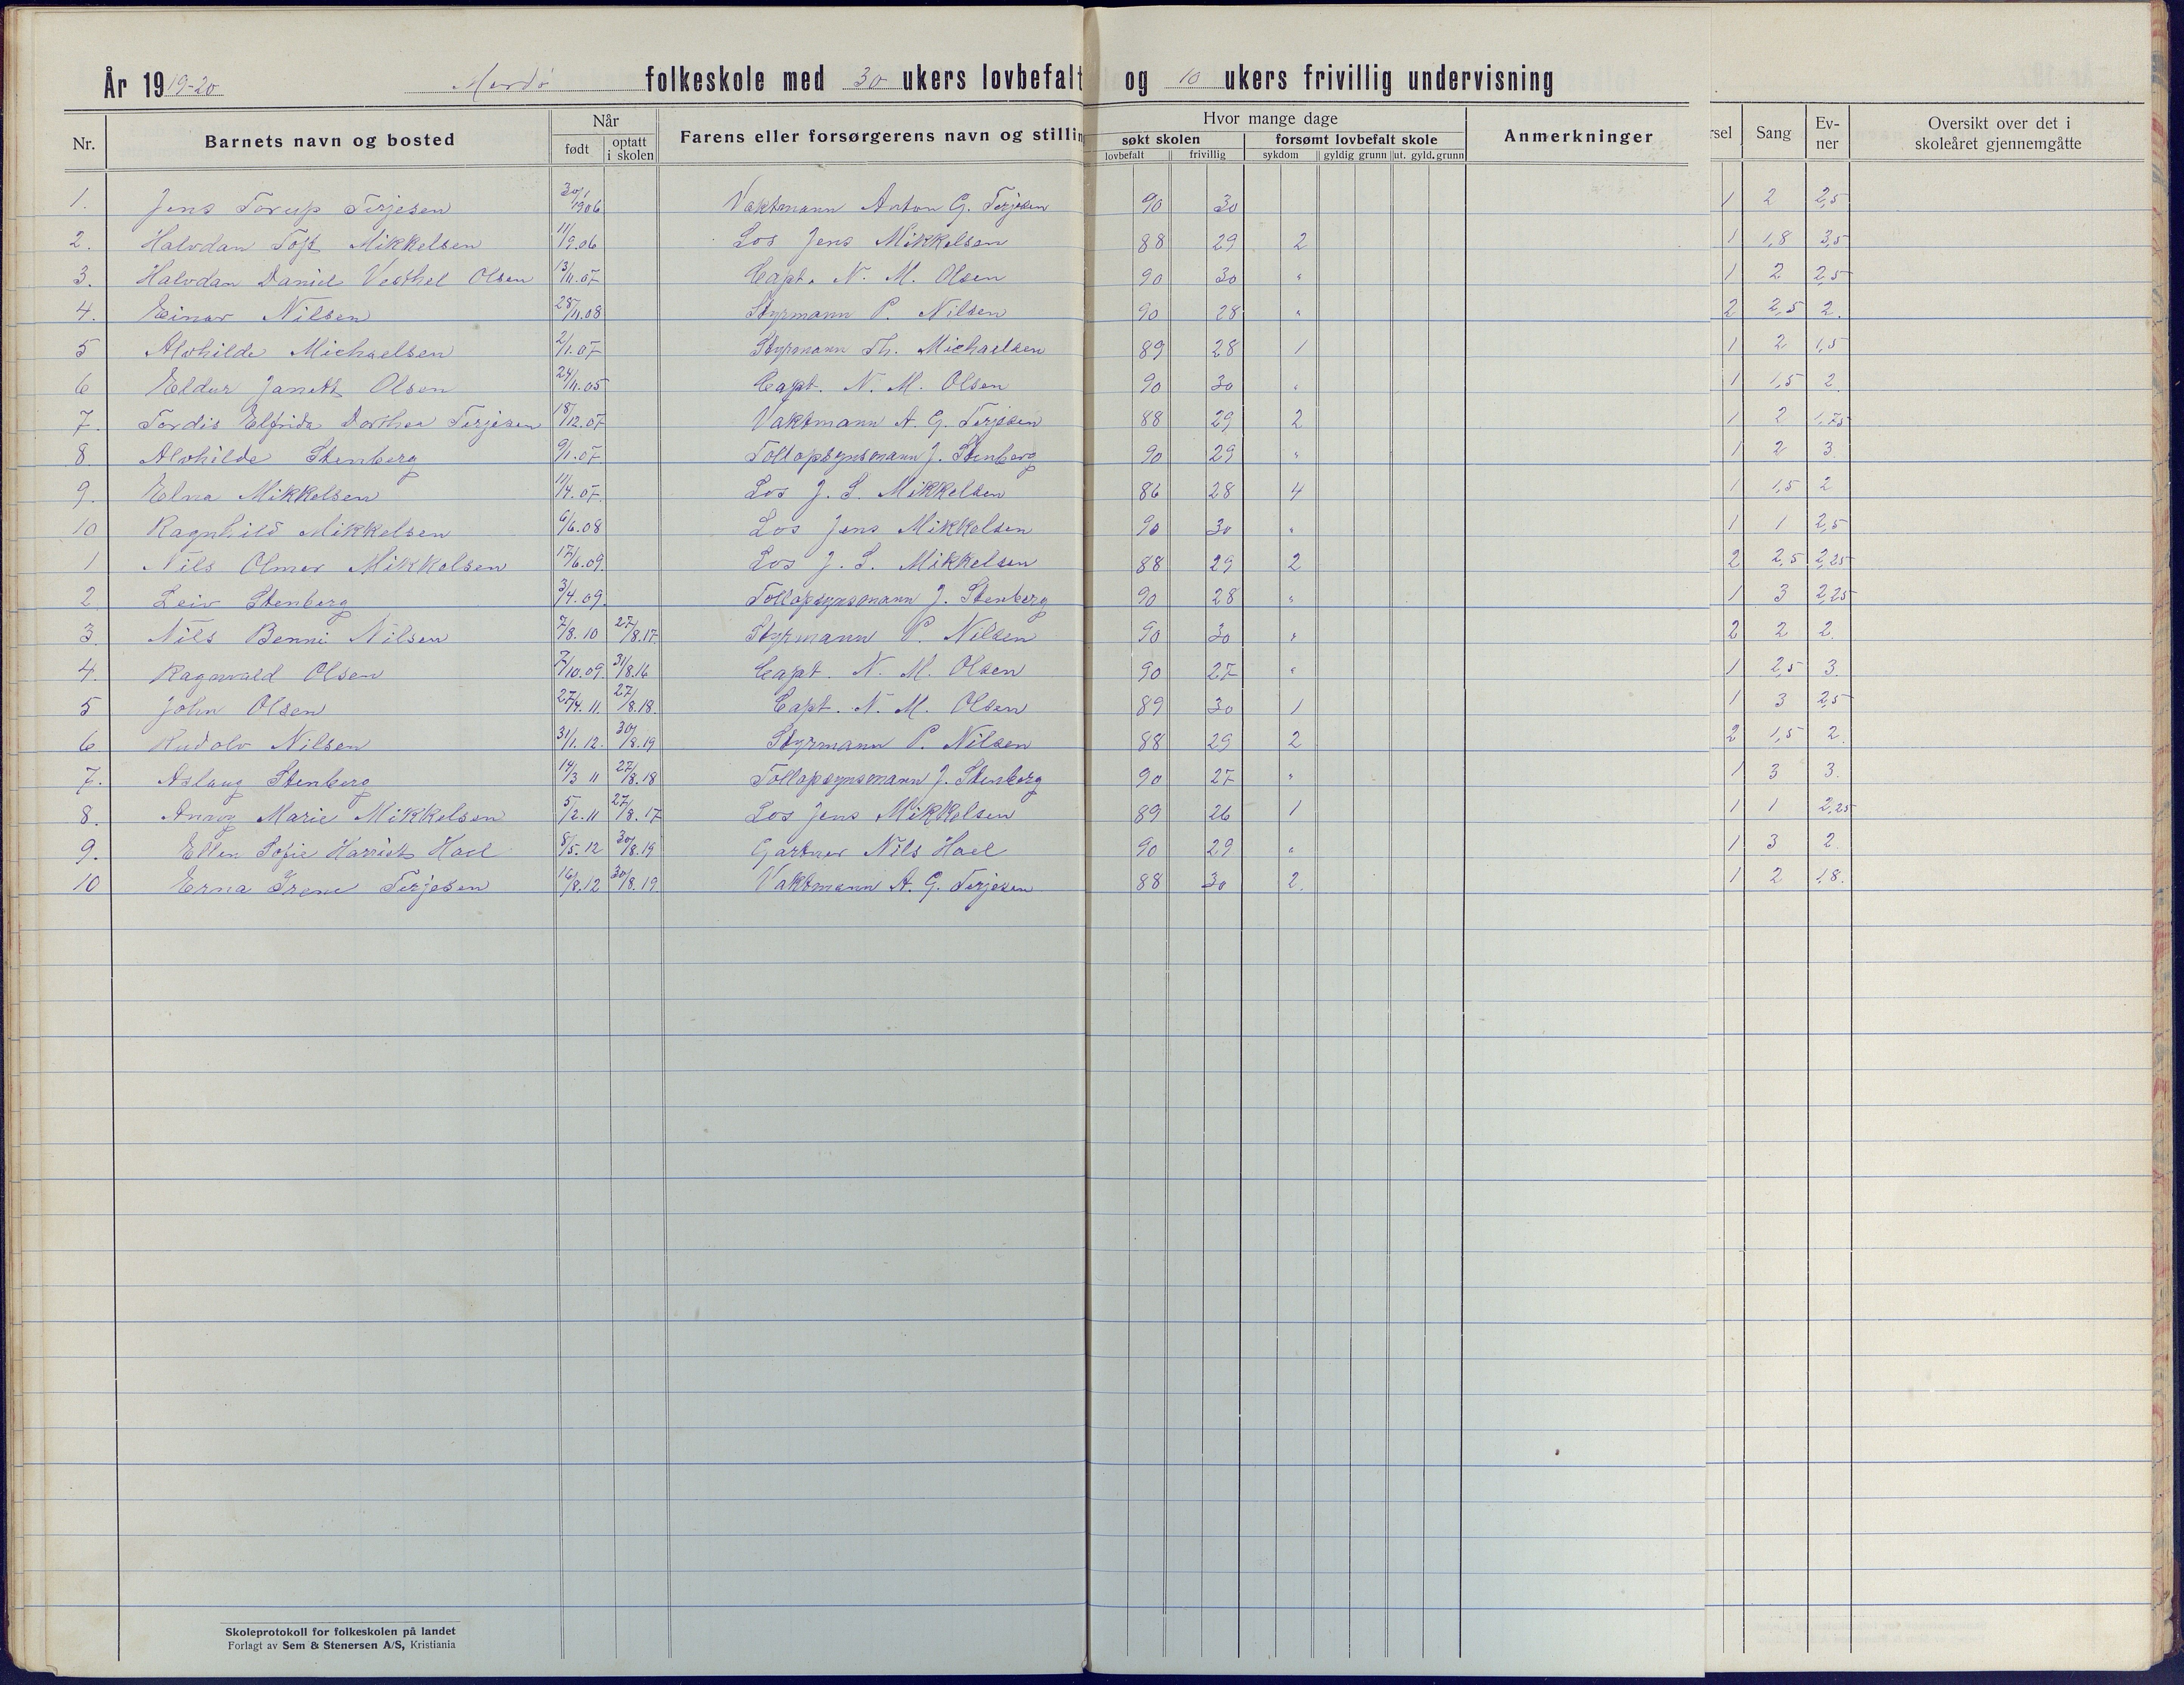 År 1919-20 Merdö folkeskole med 30 ukers lovbefalt og 10 ukers frivillig undervisning
Nr. Barnets navn og bosted Når født optatt i skolen Farens eller forsørgerens navn og stillin Hvor mange dage søkt skolen lovbefalt frivillig forsømt lovbefalt skole sykdom gyldig grunn ut. gyld. grunn Anmerkninger rsel Sang Ev-ner Oversikt over det i skoleåret gjennemgåtte
1. Jens Torup Terjesen 30/1 1906 Vaktmann Anton G. Terjesen 90 30 1 2 2,5
2. Halvdan Toft Mikkelsen 11/9.06 Los Jens Mikkelsen 88 29 2 1 1,8 3,5
3. Halvdan Daniel Vesthel Olsen 13/11.07 Capt. N. M. Olsen 90 30 " 1 2 2,5
4. Einar Nilsen 28/11.08 Styrmann P. Nilsen 90 28 " 2 2,5 2.
5 Alvhilde Michaelsen 2/1.07 Styrmann Th. Michaelsen 89 28 1 1 2 1,5
6 Eldur Janett Olsen 24/11.05 Capt. N. M. Olsen 90 30 " 1 1,5 2.
7. Tordis Elfrida Dorthea Terjesen 18/12.07 Vaktmann A. G. Terjesen 88 29 2 1 2 1,75
8 Alvhilde Stenberg 9/1.07 Tollopsynsmann J. Stenberg 90 29 " 1 2 3
9. Elna Mikkelsen 11/4.07. Los J. S. Mikkelsen 86 28 4 1 1,5 2
10 Ragnhild Mikkelsen 6/6.08 Los Jens Mikkelsen 90 30 " 1 1 2,5
1 Nils Olmer Mikkelsen 17/6.09. Los J. S. Mikkelsen 88 29 2 2 2,5 2,25
2. Leiv Stenberg 3/4.09. Tollopsynsmann J. Stenberg 90 28 " 1 3 2,25
3. Nils Benni Nilsen 7/8.10 27/8.17 Styrmann P. Nilsen 90 30 " 2 2 2.
4. Ragnvald Olsen 7/10.09. 31/8.16 Capt. N. M. Olsen 90 27 " 1 2,5 3.
5 John Olsen 27/4.11. 27/8.18. Capt. N. M. Olsen 89 30 1 1 3 2,5
6. Rudolv Nilsen 31/1.12. 30/8.19 Styrmann P. Nilsen 88 29 2 2 1,5 2.
7. Aslaug Stenberg 14/3 11 27/8.18 Tollopsynsmann J. Stenberg 90 27 " 1 3 3.
8. Annvg Marie Mikkelsen 5/2.11 27/8.17 Los Jens Mikkelsen 89 26 1 1 1 2,25
9. Ellen Sofie Harriets Hael 8/5.12 30/8.19 Gartner Nils Hael 90 29 " 1 3 2
10 Erna Irene Terjesen 16/8.12 30/8.19 Vaktmann A. G. Terjesen 88 30 2. 1 2 1,8.
Skoleprotokoll for folkeskolen på landet
Forlagt av Sem & Stenersen A/S, Kristiania